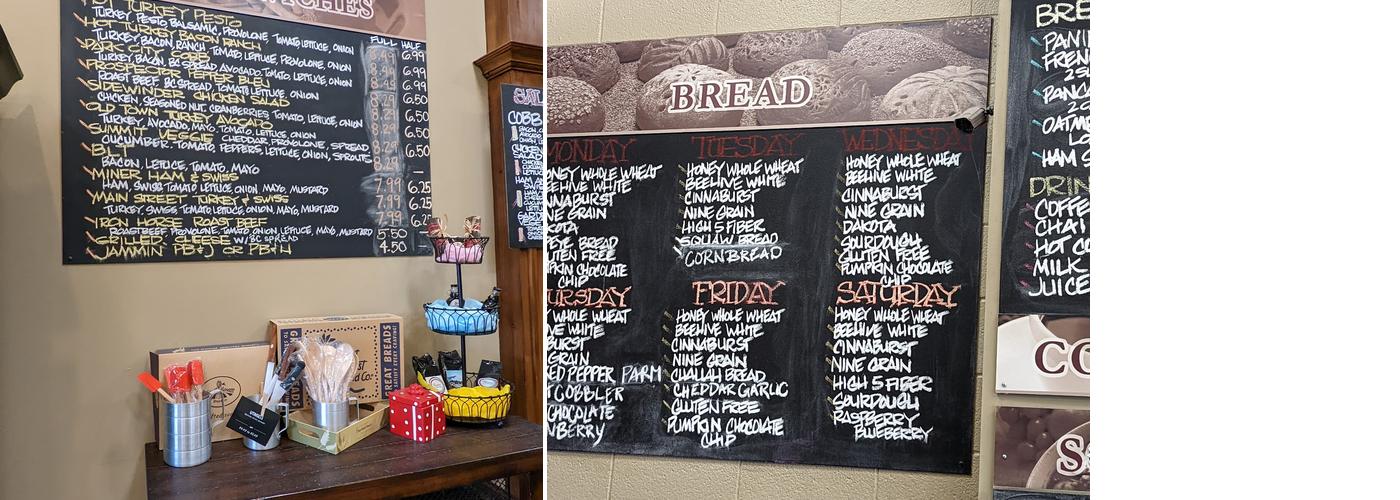 HOT TURKEY PESTO
TURKEY, PESTO, BALSAMIC, PROVOLONE, TOMATO, LETTUCE, ONION
HOT TURKEY BACON RANCH
TURKEY, BACON, RANCH, TOMATO, LETTUCE, PROVOLONE, ONION
PARK CITY COBB
TURKEY, BACON, BC SPREAD, AVOCADO, TOMATO, LETTUCE, ONION
PROSPECTOR PEPPER BLEU
ROAST BEEF, BC SPREAD, TOMATO, LETTUCE, ONION
SIDEWINDER CHICKEN SALAD
CHICKEN, SEASONED NUT, CRANBERRIES TOMATO, LETTUCE, ONION
OLD TOWN TURKEY AVOCADO
TURKEY, AVOCADO, MAYO, TOMATO, LETTUCE, ONION
SUMMIT VEGGIE CHEDDAR, PROVOLONE, SPREAD
CUCUMBER, TOMATO, PEPPERS, LETTUCE, ONION, SPROUTS
BLT
BACON, LETTUCE, TOMATO, MAYO
MINER HAM & SWISS
HAM, SWISS TOMATO, LETTUCE, ONION, MAYO, MUSTARD
MAIN STREET TURKEY & SWISS
TURKEY, SWISS, TOMATO, LETTUCE, ONION, MAYO, MUSTARD
IRON HORSE ROAST BEEF
ROAST BEEF PROVOLONE, TOMATO, ONION, LETTUCE, MAYO, MUSTARD
GRILLED CHEESE W/ BC SPREAD
JAMMIN PB&J OR PB&H
FULL HALF
8.49 6.99
8.49 6.99
8.49 6.99
8.29 6.50
8.29 6.50
8.29 6.50
8.29 6.50
8.29 —
7.99 6.25
7.99 6.25
7.99
5.50 —
4.50 —
COBB
GREAT BREADS
BREAD
MONDAY
HONEY WHOLE WHEAT
BEEHIVE WHITE
NINE GRAIN
BREAD
GLUTEN FREE
PUMPKIN CHOCOLATE
CHIP
TUESDAY
HONEY WHOLE WHEAT
BEEHIVE WHITE
CINNABURST
NINE GRAIN
HIGH 5 FIBER
SQUAW BREAD
CORNBREAD
WEDNESDAY
HONEY WHOLE WHEAT
BEEHIVE WHITE
CINNABURST
NINE GRAIN
DAKOTA
SOURDOUGH
GLUTEN FREE
PUMPKIN CHOCOLATE
CHIP
URSDAY
WHOLE WHEAT
WHITE
BURST
GRAIN
ED PEPPER PARM
COBBLER
CHOCOLATE
FRIDAY
HONEY WHOLE WHEAT
BEEHIVE WHITE
CINNABURST
NINE GRAIN
CHALLAH BREAD
CHEDDAR GARLIC
GLUTEN FREE
PUMPKIN CHOCOLATE
CHIP
SATURDAY
HONEY WHOLE WHEAT
BEEHIVE WHITE
CINNABURST
NINE GRAIN
HIGH 5 FIBER
SOURDOUGH
RASPBERRY
BLUEBERRY
BRE
PANI
FREN
PANC
OATME
HAM S
DRIN
COFFE
CHAI
HOT CO
MILK
JUICE
CO